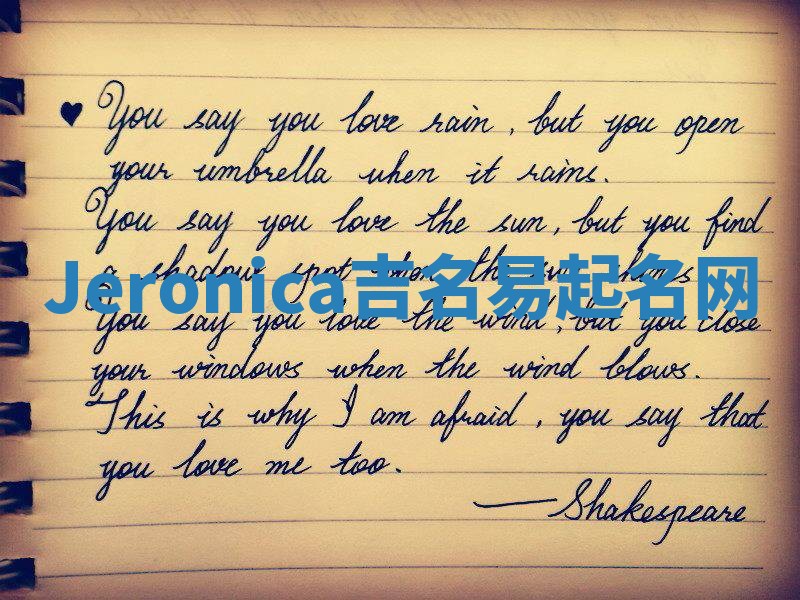 ♥ You say you love rain, but you open
your umbrella when it rains.
You say you love the sun, but you find
a shadow spot when the sun shines
Jeronica吉名易起名网
You say you love the wind, but you close
your windows when the wind blows.
This is why I am afraid, you say that
you love me too.
—Shakespeare